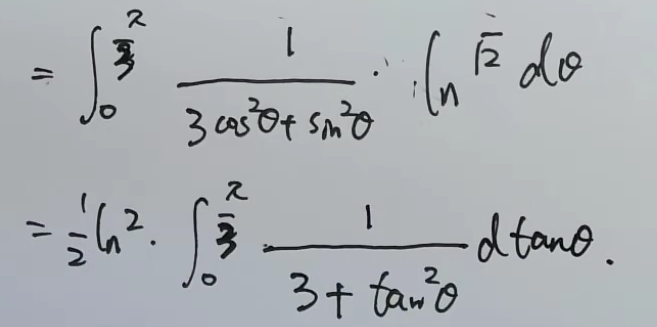 = ∫₀^{π/3} 1/(3cos²θ + sin²θ) · ln √2 dθ
= 1/2 ln 2 · ∫₀^{π/3} 1/(3 + tan²θ) d tanθ.